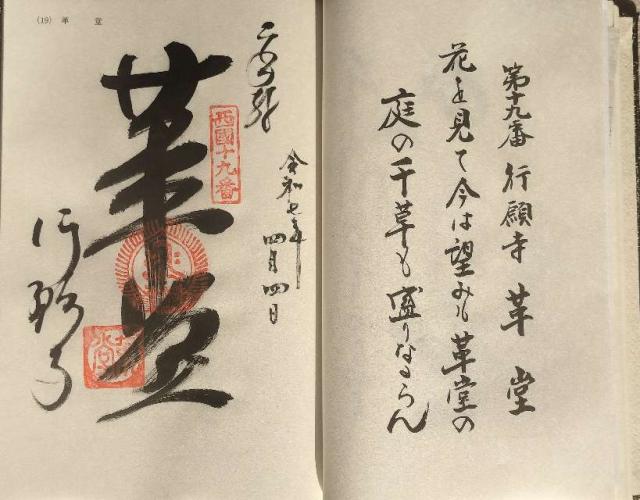 第十九番 行願寺 革堂
花を見て今は望みも革堂の
庭の千草も盛りなるらん
(19) 革堂
奉拝
西國十九番
令和七年
四月四日
革堂
行願寺